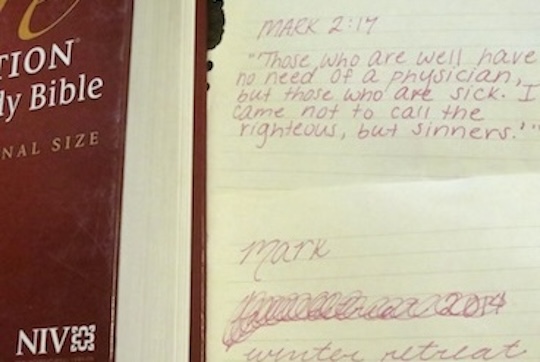 TION
ly Bible
NAL SIZE
NIV
MARK 2:17
"Those who are well have
no need of a physician,
but those who are sick. I
came not to call the
righteous, but sinners.'"
Mark
2014
winter retreat